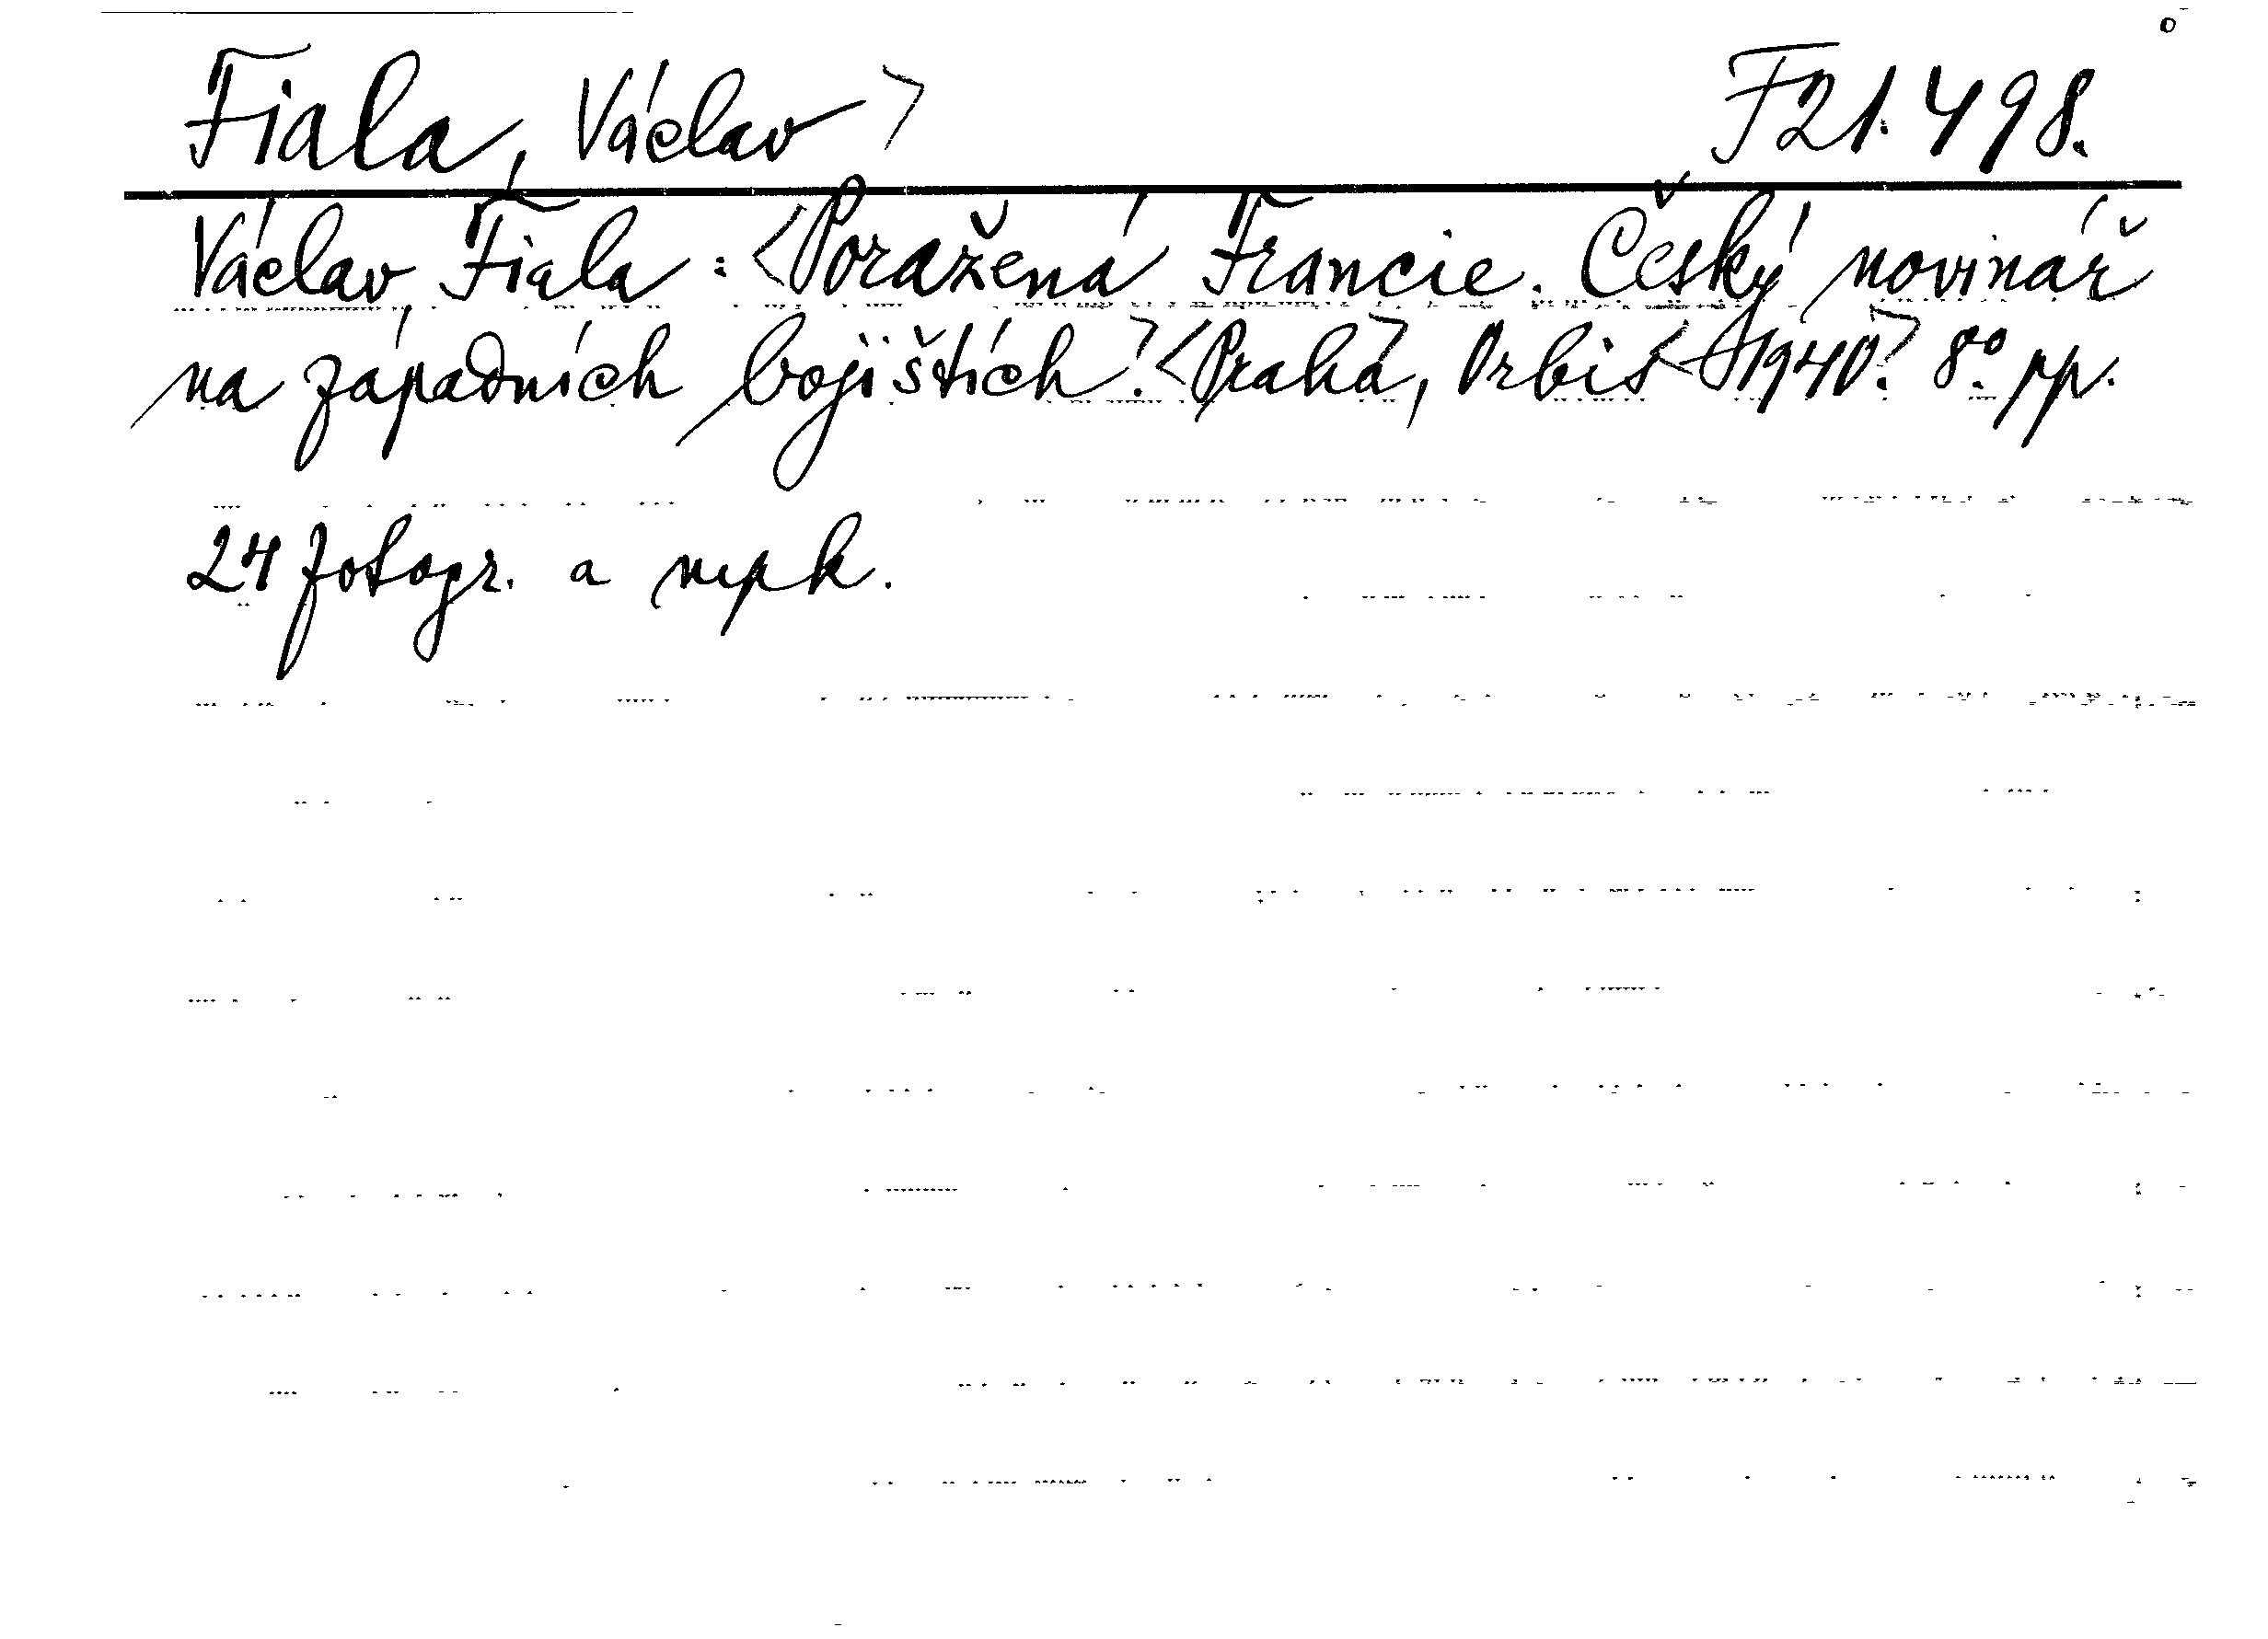 Fiala, Václav > F21.498.
Václav Fiala : <Poražená Francie. Český novinář
na západních bojištích>. <Praha>, Orbis <1940>. 8° pp.
24 fotogr. a mpk.